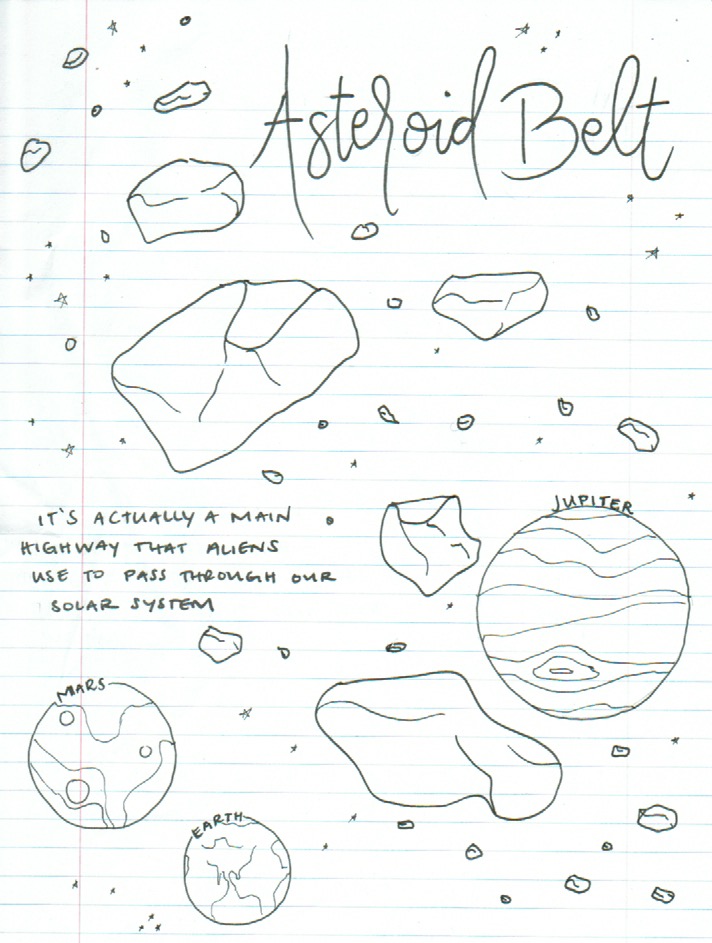 Asteroid Belt
JUPITER
IT'S ACTUALLY A MAIN
HIGHWAY THAT ALIENS
USE TO PASS THROUGH OUR
SOLAR SYSTEM
MARS
EARTH